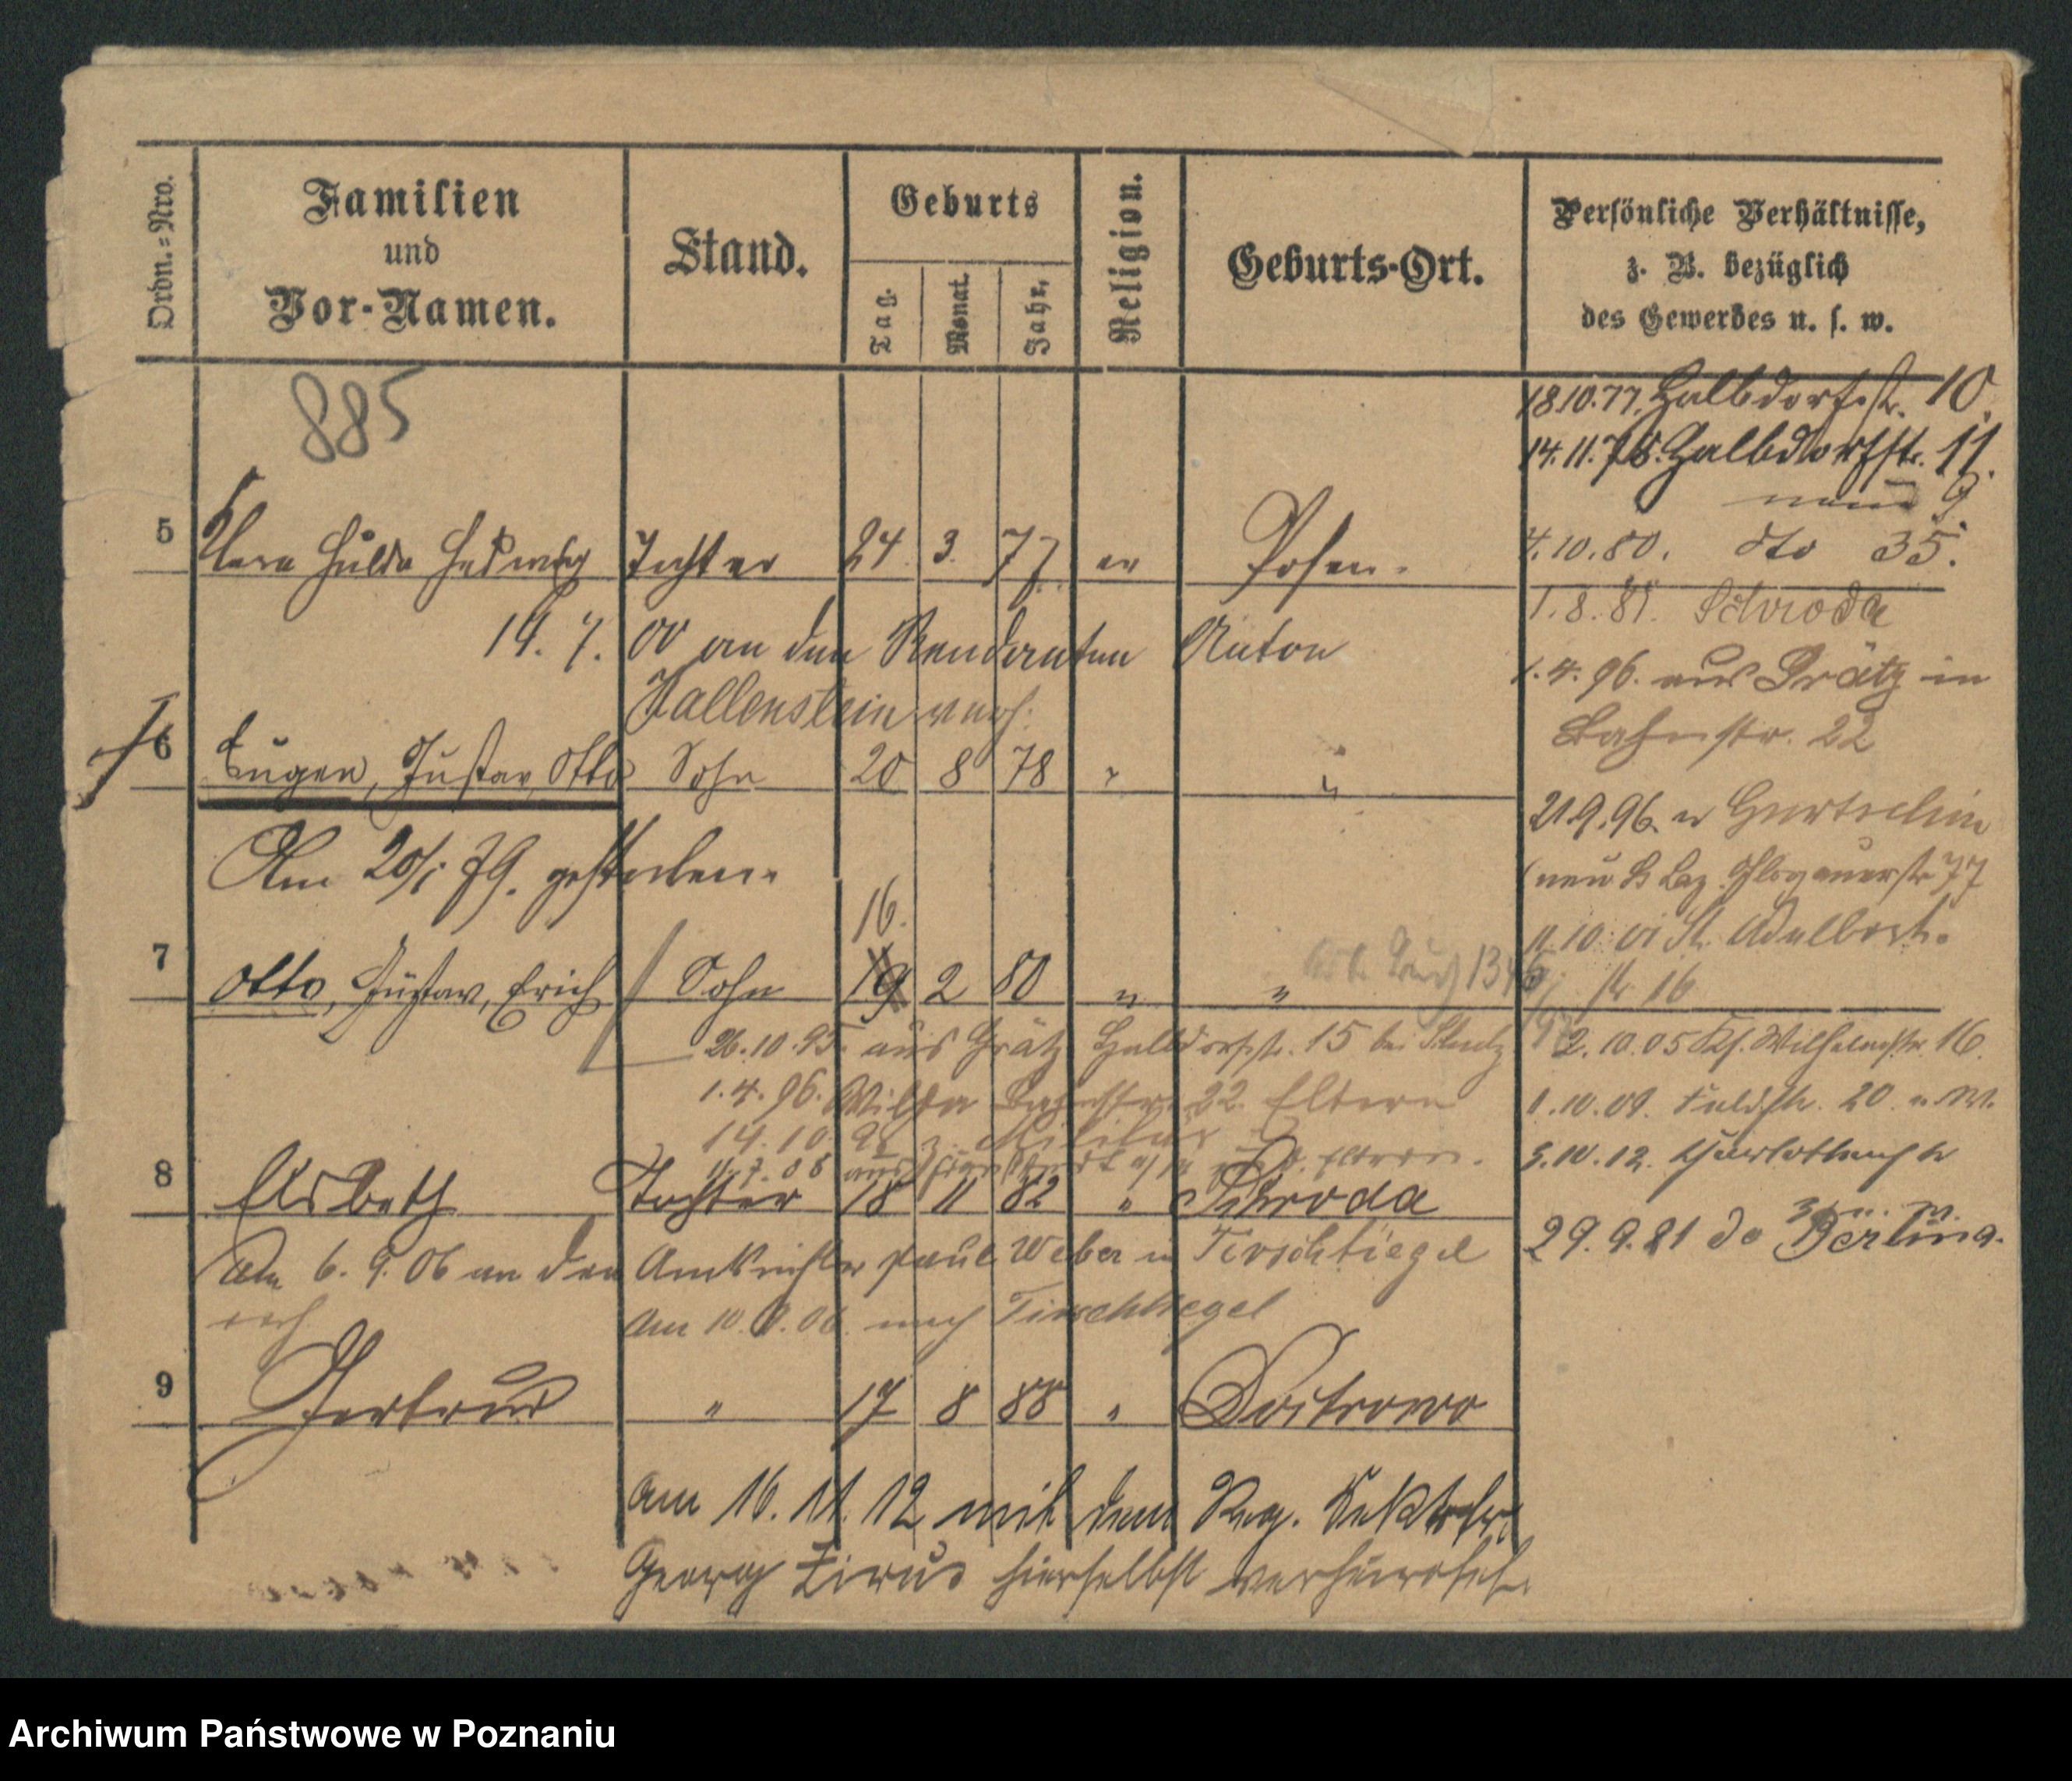 Ordn.=Nro.
Familien und Vor-Namen.
Stand.
Geburts
Tag.
Monat.
Jahr.
Religion.
Geburts-Ort.
Persönliche Verhältnisse, z. B. bezüglich des Gewerbes u. s. w.
885
18.10.77. Halbdorfstr. 10.
14.11.78. Halbdorfstr. 11.
neue 9
5 Clara Hulda Hedwig Tochter 24. 3. 77. ev Posen.
4.10.80. dto 35.
14. 7. 00 an den Rendanten Anton
Hallenstein verh.
1.8.81. Schroda
1.4.96. aus Grätz in
Bahnstr. 22
6 Eugen, Gustav, Otto Sohn 20 8 78 " "
Am 20/1 79. gestorben.
21.9.96.
Glogauerstr 77
16.
7 Otto, Gustav, Erich Sohn 19 2 80 " "
11.10.01 St. Adalbert-
str. 16
26.10.95. aus Grätz Halbdorfstr. 15 bei
1.4.96. Wilda Bahnstr. 22. Eltern
14.10.98 z. Militär
11.7.08 aus
2.10.05 Wilhelmstr. 16.
1.10.09. Feldstr. 20
3.10.12.
8 Elsbeth Tochter 18 11 82 " Schroda
Am 6. 9. 06 an den Amtsrichter Paul Weber in Tirschtiegel
verh.
Am 10. 06. nach Tirschtiegel
29.9.21 do Berlin
9 Gertrud " 17 8 88 "
Am 16. 11. 12 mit dem Reg. Sekretär
Georg Zirus hierselbst verheiratet.
Archiwum Państwowe w Poznaniu